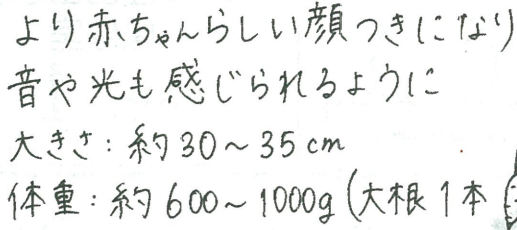 より赤ちゃんらしい顔つきになり
音や光も感じられるように
大きさ：約30～35cm
体重：約600～1000g（大根1本